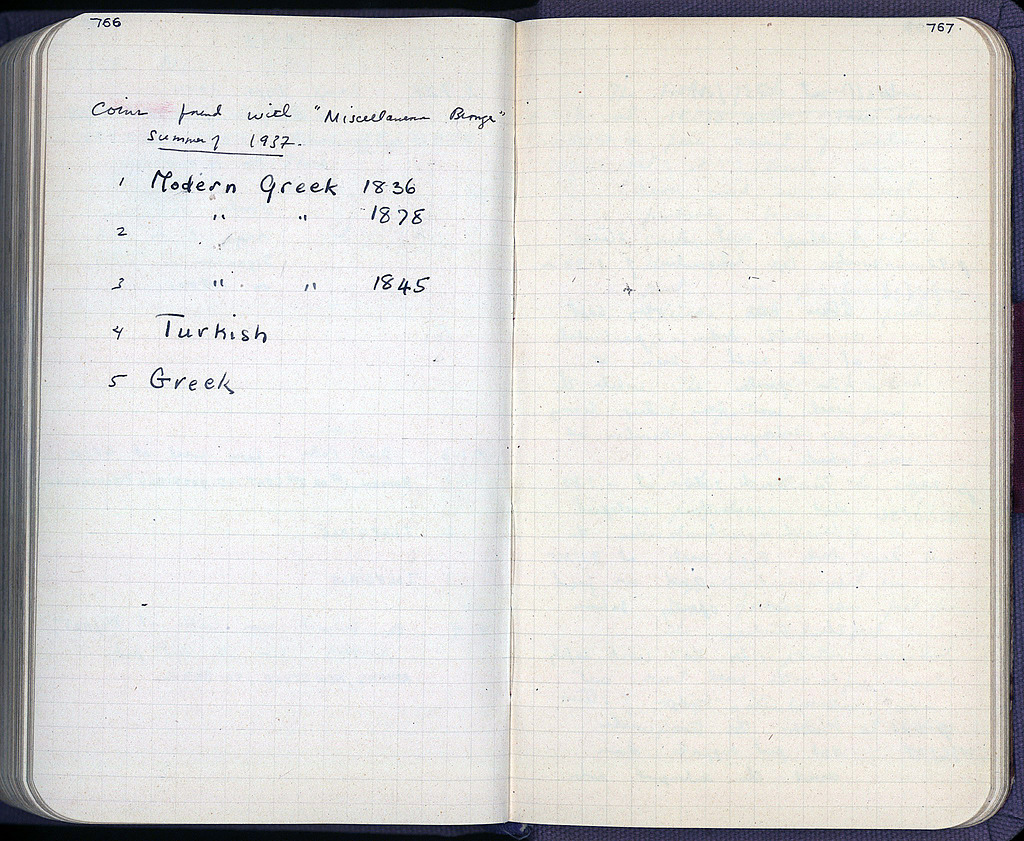 766
767.
Coins found with "Miscellaneous Bronze"
Summer 1937.
1 Modern Greek 1836
" " 1878
2
3 " " 1845
4 Turkish
5 Greek